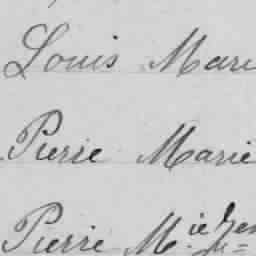 Louis Mari
Pierre Marie
Pierre M.ie